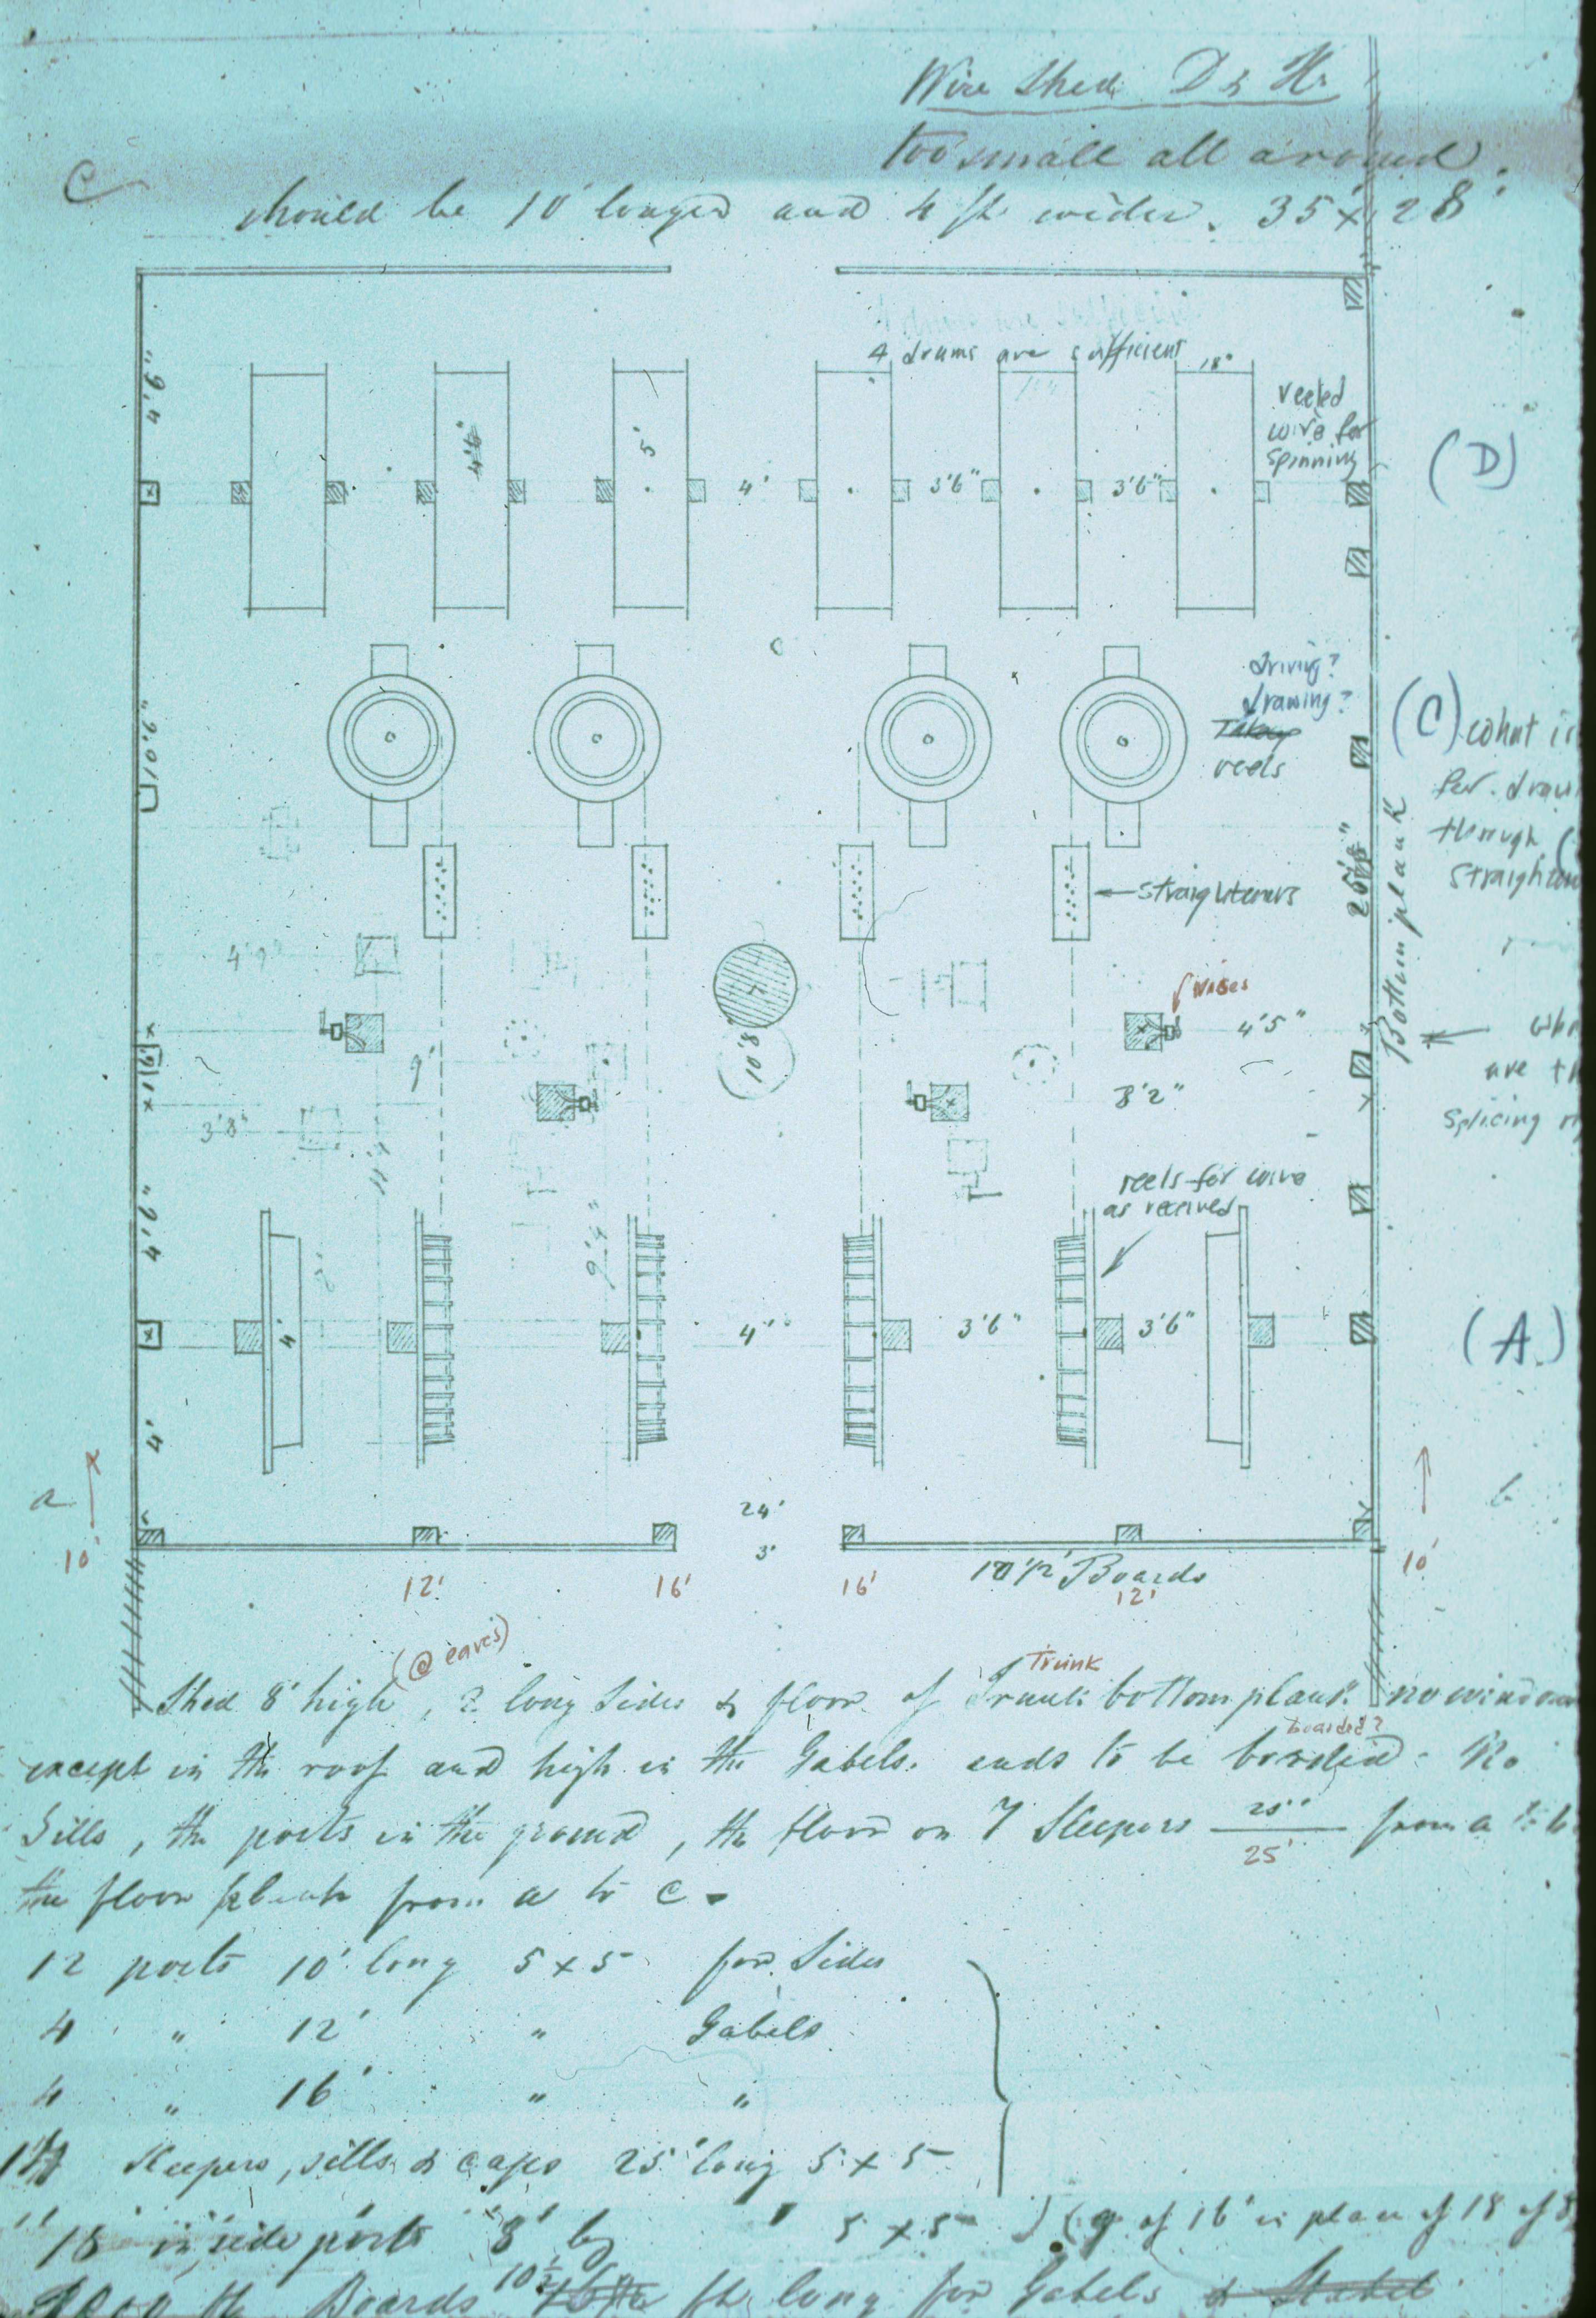 Wire Shed D & H.
too small all around.
C
should be 10' longer and 4 ft wider. 35' x 28'
4 drums are sufficient
18"
4'9"
4'6"
5'
4'
3'6"
3'6"
reeled
wire for
spinning
(D)
driving?
drawing?
reels
(C)
for
through
straighteners
Bottom plank
4'9"
10'8"
9'
vises
4'5"
8'2"
3'8"
are
splicing
reels for wire
as received
4'
4'
3'6"
3'6"
(A)
4'
a
10'
24'
3'
b
10'
12'
16'
16'
Boards
12'
(@ eaves)
Trunk
Shed 8' high, 2 long sides & floor of Trunk bottom plank. no
boarded?
except in the roof and high in the Gabels. ends to be borded. No
Sills, the posts in the ground, the floor on 7 Sleepers 25' from a to b
25'
the floor plank from a to c.
12 posts 10' long 5 x 5 for Sides
4 " 12' " Gabels
4 " 16' " "
Sleepers, sills & caps 25' long 5 x 5
18 inside posts 8' lg " 5 x 5 of 16' in place of 18 of 8
Boards 10½ ft long for Gabels